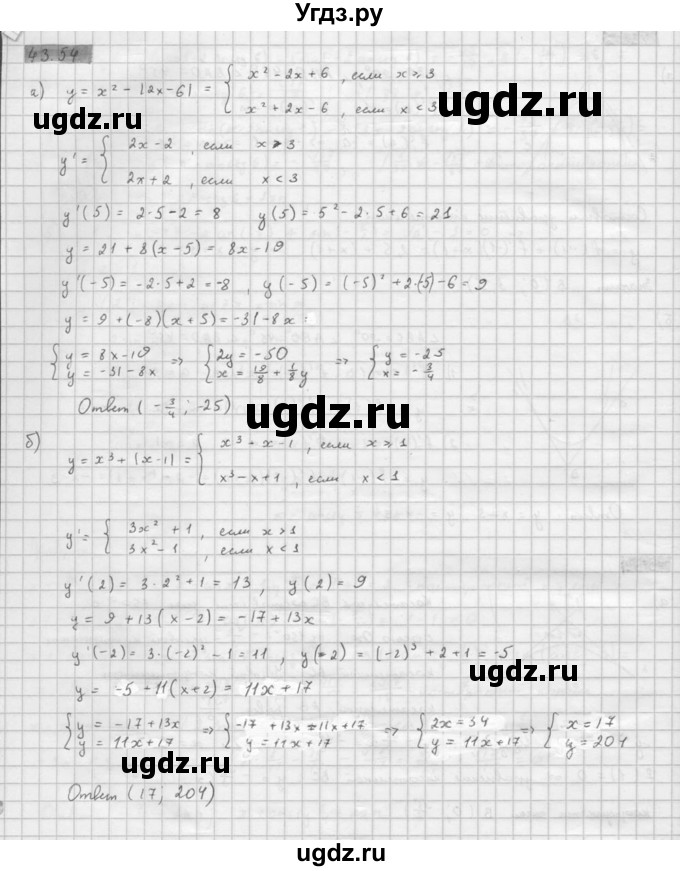 Угдз.ру
43.54
а) y = x² - |2x-6| = { x² - 2x + 6, если x ≥ 3
x² + 2x - 6, если x < 3
ugdz.ru
ugdz.ru
y' = { 2x - 2, если x > 3
2x + 2, если x < 3
y'(5) = 2·5 - 2 = 8 y(5) = 5² - 2·5 + 6 = 21
y = 21 + 8(x - 5) = 8x - 19
y'(-5) = -2·5 + 2 = -8, y(-5) = (-5)² + 2·(-5) - 6 = 9
y = 9 + (-8)(x + 5) = -31 - 8x
{ y = 8x - 19 => { 2y = -50 => { y = -25
y = -31 - 8x x = 19/8 + 1/8 y x = -3/4
Ответ (-3/4; -25)
ugdz.ru
б) y = x³ + |x-1| = { x³ + x - 1, если x ≥ 1
x³ - x + 1, если x < 1
y' = { 3x² + 1, если x > 1
3x² - 1, если x < 1
y'(2) = 3·2² + 1 = 13, y(2) = 9
y = 9 + 13(x - 2) = -17 + 13x
y'(-2) = 3·(-2)² - 1 = 11, y(-2) = (-2)³ + 2 + 1 = -5
ugdz.ru
y = -5 + 11(x + 2) = 11x + 17
{ y = -17 + 13x => { -17 + 13x = 11x + 17 => { 2x = 34 => { x = 17
y = 11x + 17 y = 11x + 17 y = 11x + 17 y = 204
ugdz.ru
Ответ (17; 204)
ugdz.ru